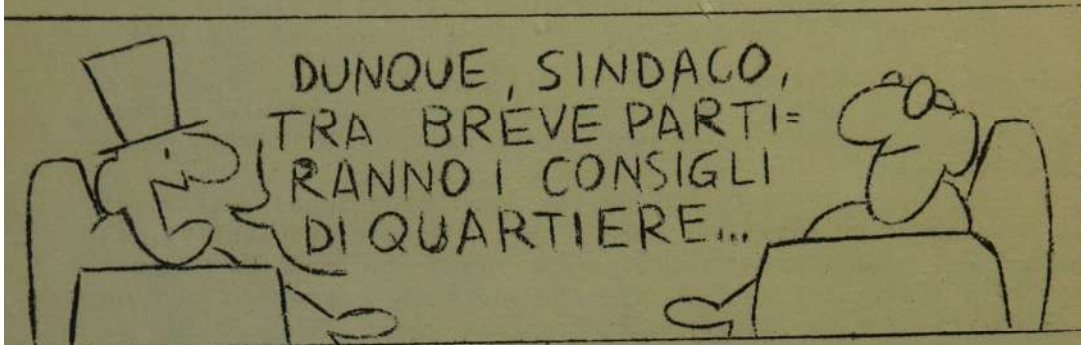 DUNQUE, SINDACO,
TRA BREVE PARTI=
RANNO I CONSIGLI
DI QUARTIERE...